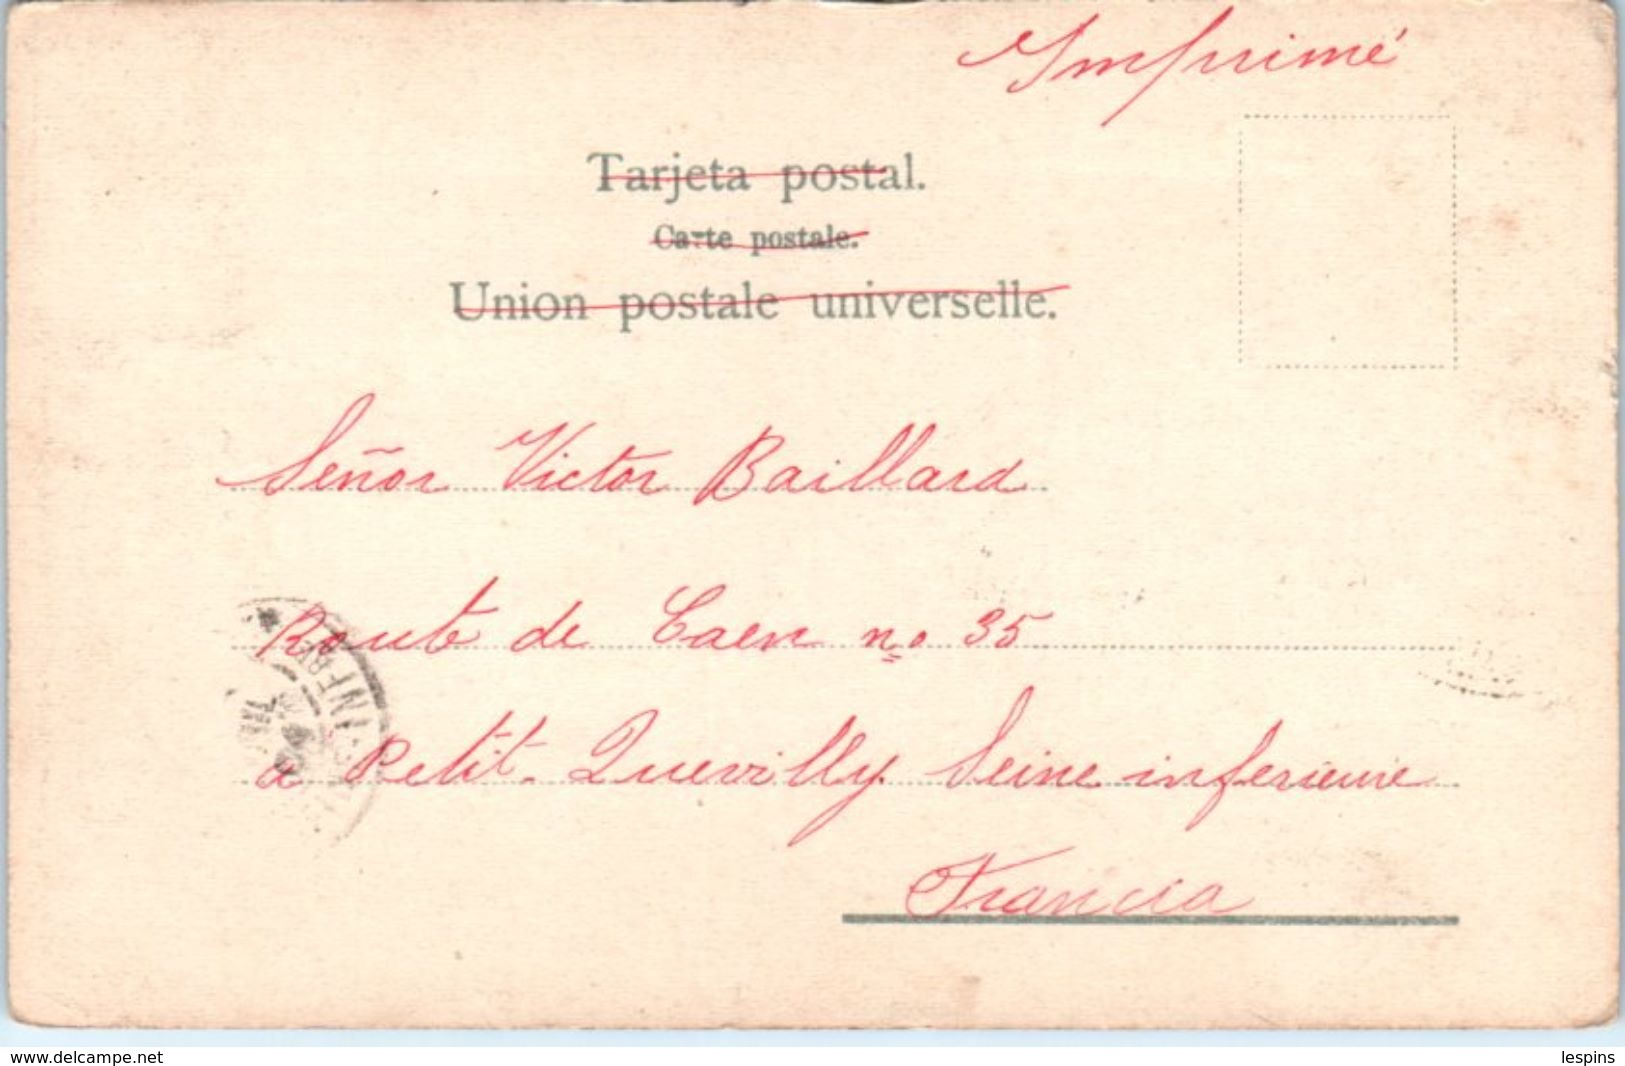 Imprimé
Tarjeta postal.
Carte postale.
Union postale universelle.
Señor Victor Baillard
Route de Caen no 35
a Petit-Quevilly Seine inferieure
Francia
INFRE
04
www.delcampe.net
lespins